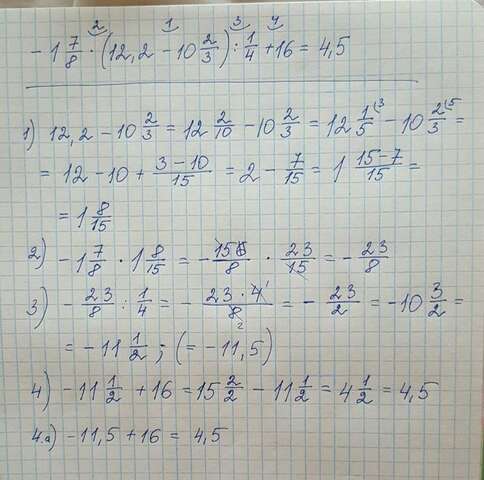 2 1 3 4
-1 7/8 · (12,2 - 10 2/3) : 1/4 + 16 = 4,5
1) 12,2 - 10 2/3 = 12 2/10 - 10 2/3 = 12 1/5 (3 - 10 2/3 (5 =
= 12 - 10 + (3-10)/15 = 2 - 7/15 = 1 (15-7)/15 =
= 1 8/15
2) -1 7/8 · 1 8/15 = - 15/8 · 23/15 = - 23/8
3) - 23/8 : 1/4 = - (23·4 1)/(8 2) = - 23/2 = -10 3/2 =
= -11 1/2 ; (= -11,5)
4) -11 1/2 + 16 = 15 2/2 - 11 1/2 = 4 1/2 = 4,5
4.а) -11,5 + 16 = 4,5